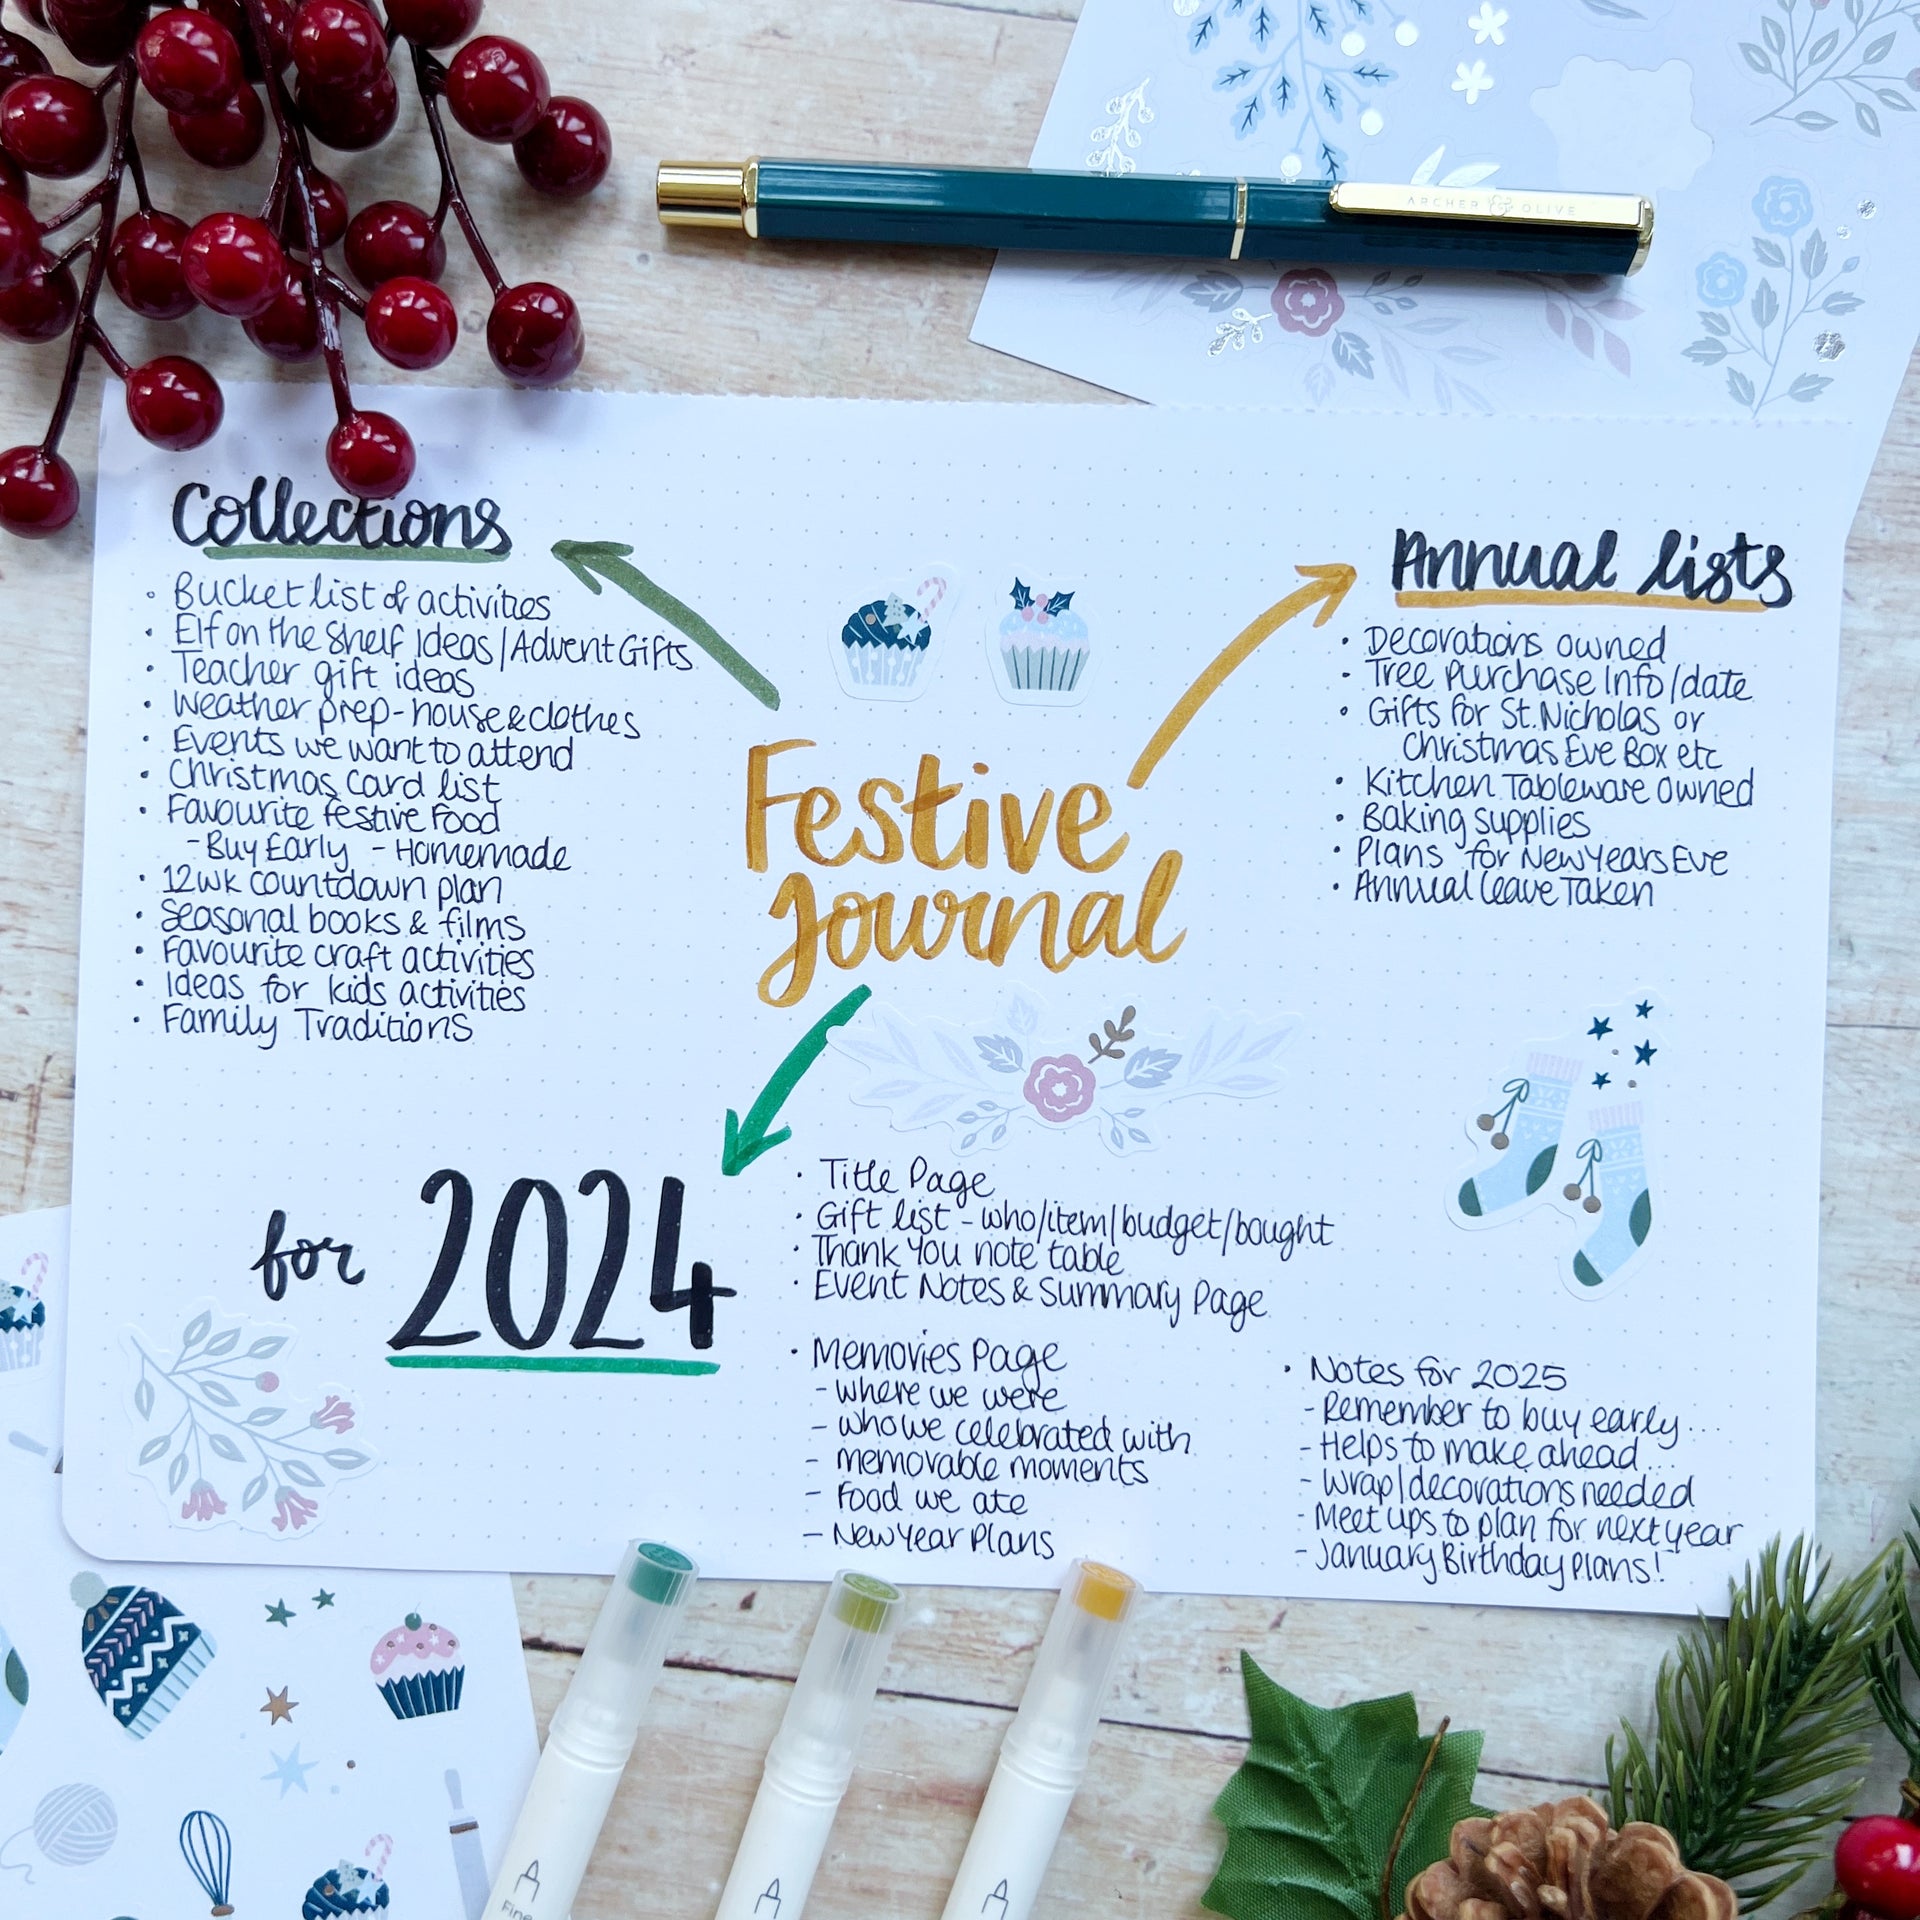 ARCHER & OLIVE
Collections
• Bucket list of activities
• Elf on the Shelf Ideas/Advent Gifts
• Teacher gift ideas
• Weather prep - house & clothes
• Events we want to attend
• Christmas card list
• Favourite festive Food
- Buy Early - Homemade
• 12wk countdown plan
• Seasonal books & films
• Favourite craft activities
• Ideas for kids activities
• Family Traditions
Annual lists
• Decorations owned
• Tree Purchase Info/date
• Gifts for St. Nicholas or
Christmas Eve Box etc
• Kitchen Tableware owned
• Baking supplies
• Plans for New Years Eve
• Annual leave Taken
Festive
Journal
for 2024
• Title Page
• Gift list - who/item/budget/bought
• Thank You note table
• Event Notes & Summary Page
• Memories Page
- where we were
- who we celebrated with
- memorable moments
- Food we ate
- New Year Plans
• Notes for 2025
- Remember to buy early...
- Helps to make ahead...
- Wrap/decorations needed
- Meet ups to plan for next year
- January Birthday Plans!
Fine